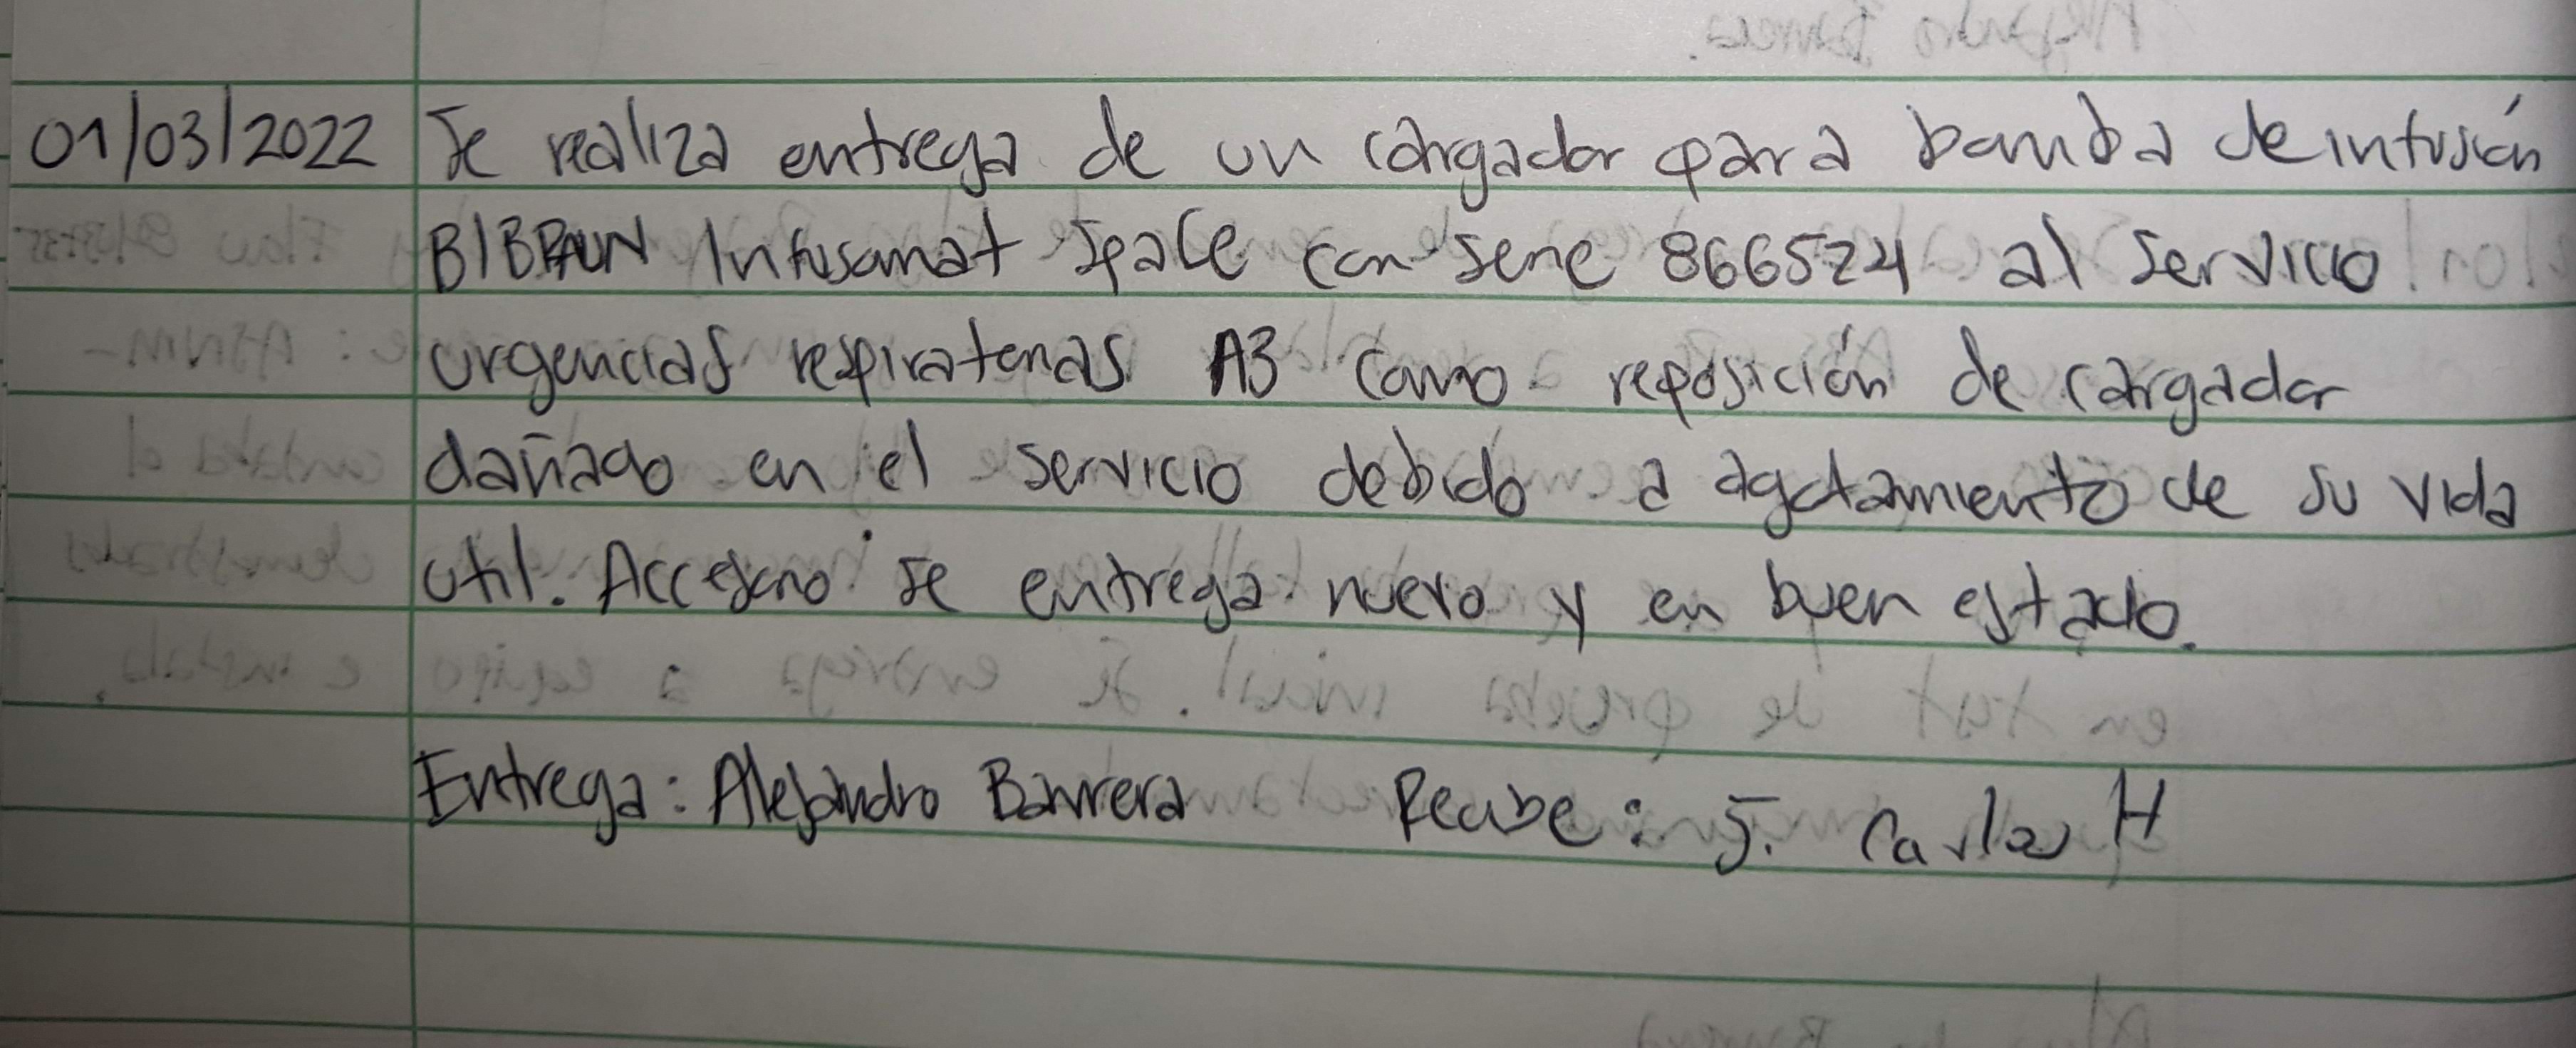 01/03/2022 Se realiza entrega de un cargador para bomba de infusión
B|BRAUN Infusomat Space con serie 866524 al servicio
urgencias respiratorias A3 como reposición de cargador
dañado en el servicio debido a agotamiento de su vida
util. Accesorio se entrega nuevo y en buen estado.
Entrega: Alejandro Barrera Recibe: J. Carlos H